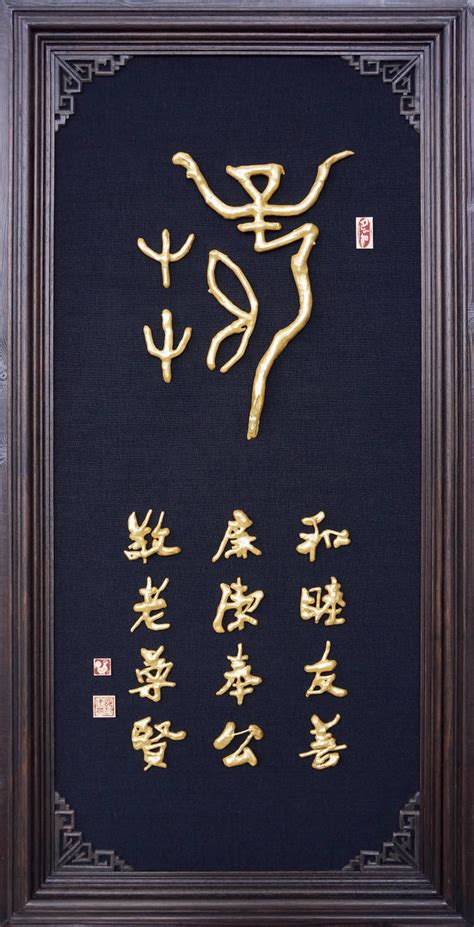 和睦友善
廉潔奉公
敬老尊賢